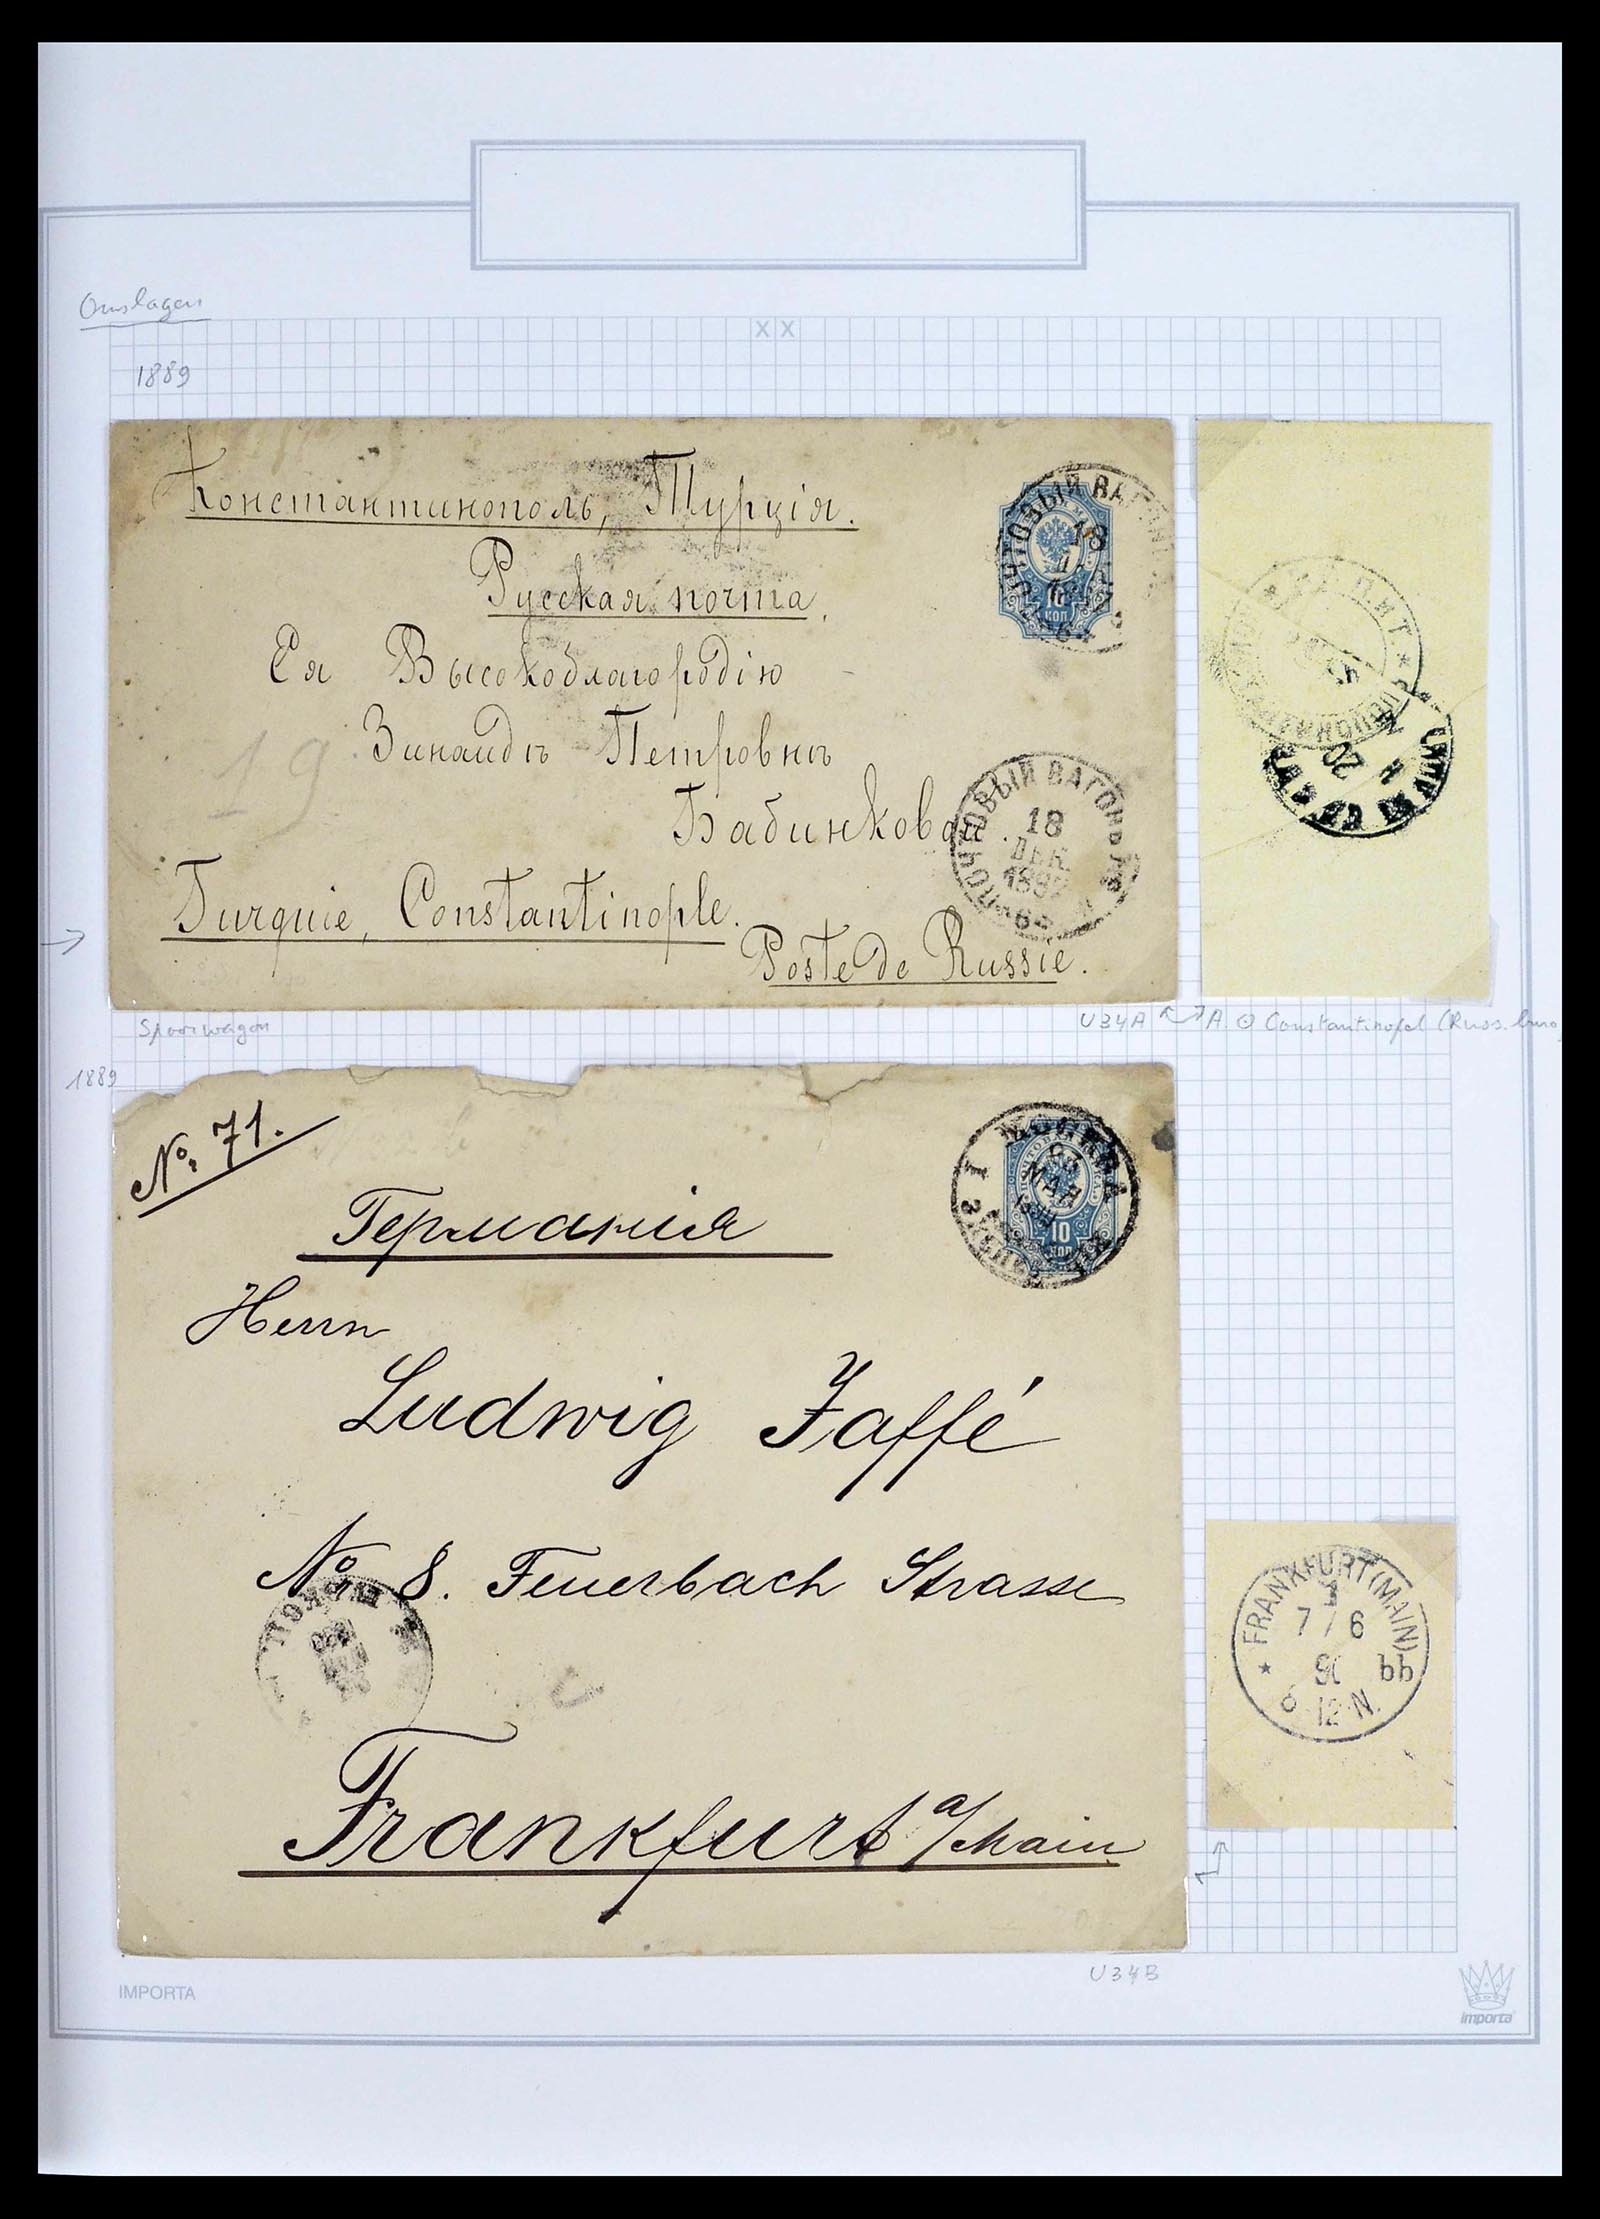 Omslagen
XX
1889
Константинополь, Турція.
Русская почта,
Ея Высокоблагородію
Зинаидѣ Петровнѣ
Бабинковой.
19
Turquie, Constantinople.
Poste de Russie.
ПОЧТОВЫЙ ВАГОНЪ
18
10
КОП
ПОЧТОВЫЙ ВАГОНЪ №
18
ДЕК.
64
20
Spoorwagon
U34A
A. Constantinopel (Russ. buro
1889
№ 71.
МОСКВА
МАЯ
10
КОП
Германія
Herrn
Ludwig Jaffé
№ 8. Feuerbach Strasse
Frankfurt a/Main
FRANKFURT (MAIN)
1
7/6
90
bb
6-12 N.
U34B
IMPORTA
importa